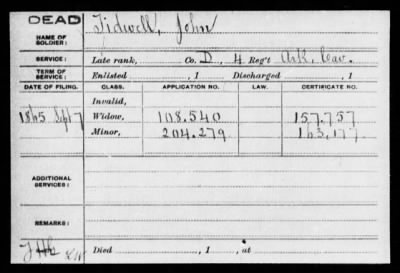 DEAD
NAME OF SOLDIER: Tidwell, John
SERVICE: Late rank, Co. D, 4 Reg't Ark. Cav.
TERM OF SERVICE: Enlisted , 1 Discharged , 1
DATE OF FILING. CLASS. APPLICATION NO. LAW. CERTIFICATE NO.
Invalid,
1865 Sept 7 Widow, 108.540 157.757
Minor, 204.279 163.177
ADDITIONAL SERVICES:
REMARKS:
Died , 1 , at